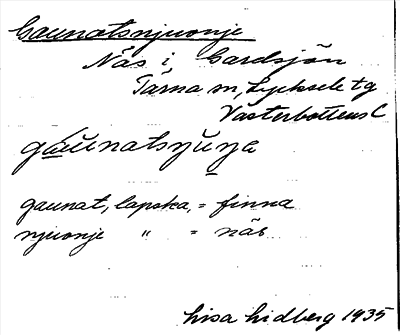 Gaunatsnjuonje
Näs i Gardsjön
Tärna sn, Lycksele tg
Västerbottens C
gáunatsŋuŋa
gaunat, lapska, = finna
njuonje " = näs
Lisa Lidberg 1935